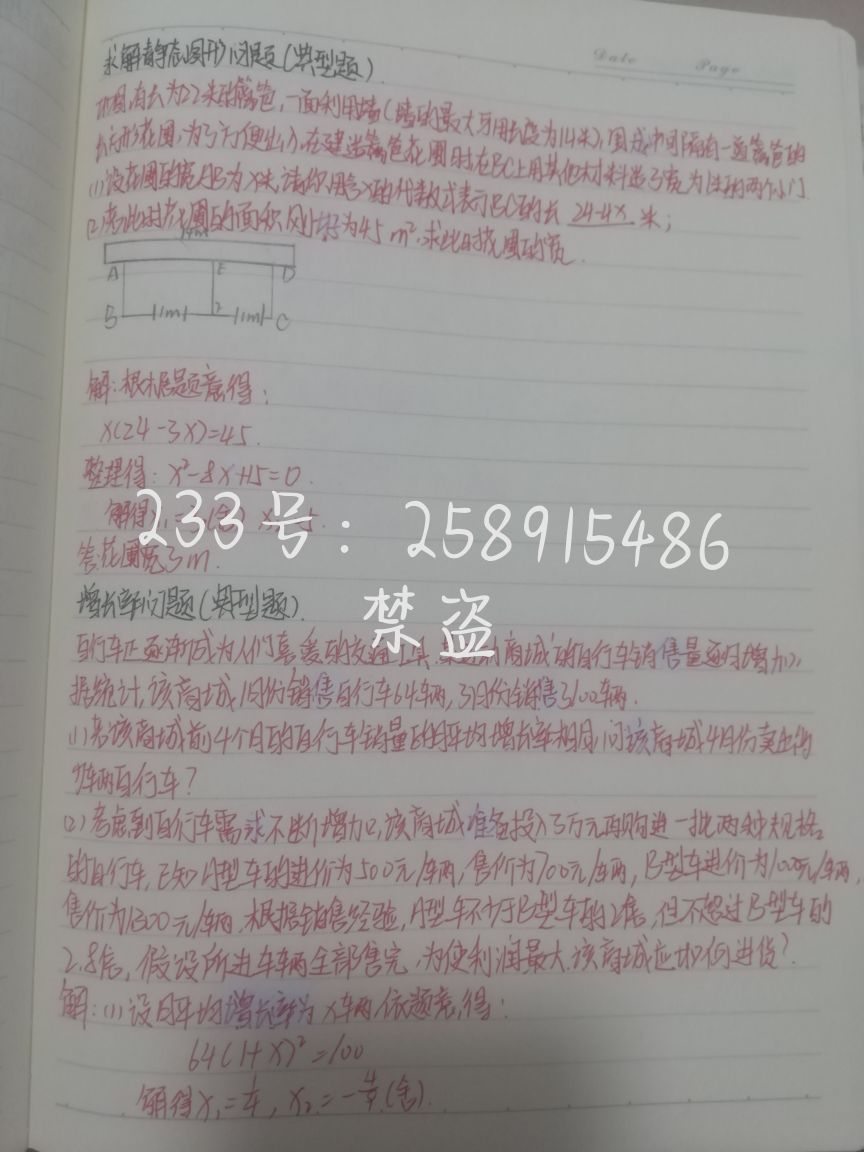 求解静态图形问题(典型题)
Date Page
如图,有长为22米的篱笆,一面利用墙(墙的最大可用长度为14米),围成中间隔有一道篱笆的
长方形花圃,为了方便出入,在建造篱笆花圃时,在BC上用其他材料造了宽为1米的两个小门.
(1)设花圃的宽AB为x米,请你用含x的代数式表示BC的长 24-4x 米;
(2)若此时花圃的面积刚好为45m²,求此时花圃的宽.
14m
A E D
B 1m F 1m C
解:根据题意得:
x(24-3x)=45.
整理得:x²-8x+15=0.
解得
答花圃宽3m.
233号: 258915486
禁盗
增长率问题(典型题).
自行车正逐渐成为人们喜爱的交通工具,商城的自行车销售量逐月增加,
据统计,该商城1月份销售自行车64辆,3月份销售3100辆.
(1)若该商城前4个月的自行车销量的月平均增长率相同,问该商城4月份卖出
多少辆自行车?
(2)考虑到自行车需求不断增加,该商城准备投入3万元再购进一批两种规格
的自行车,已知A型车的进价为500元/辆,售价为700元/辆,B型车进价为1000元/辆,
售价为1300元/辆,根据销售经验,A型车不少于B型车的2倍,但不超过B型车的
2.8倍,假设所进车辆全部售完,为使利润最大,该商城应如何进货?
解:(1)设月平均增长率为x车辆,依题意,得:
64(1+x)²=100
解得x₁=¼,x₂=-(舍).